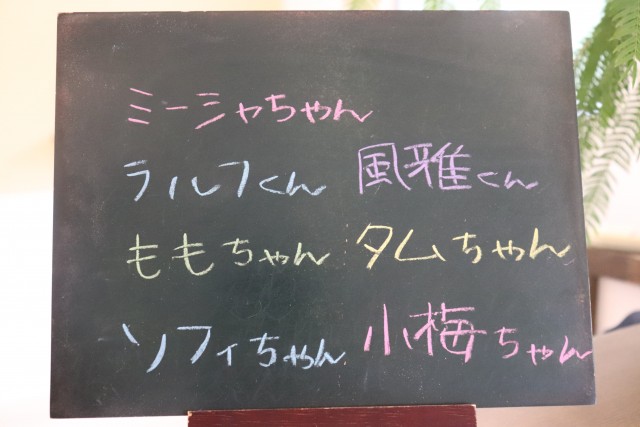 ミーシャちゃん
ラルフくん 風雅くん
ももちゃん タムちゃん
ソフィちゃん 小梅ちゃん